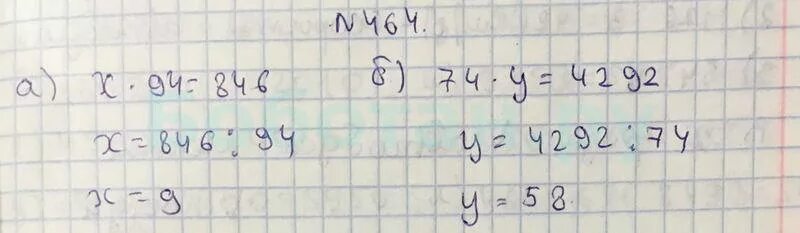 N464.
а) x · 94 = 846
x = 846 : 94
x = 9
б) 74 · y = 4292
y = 4292 : 74
y = 58.